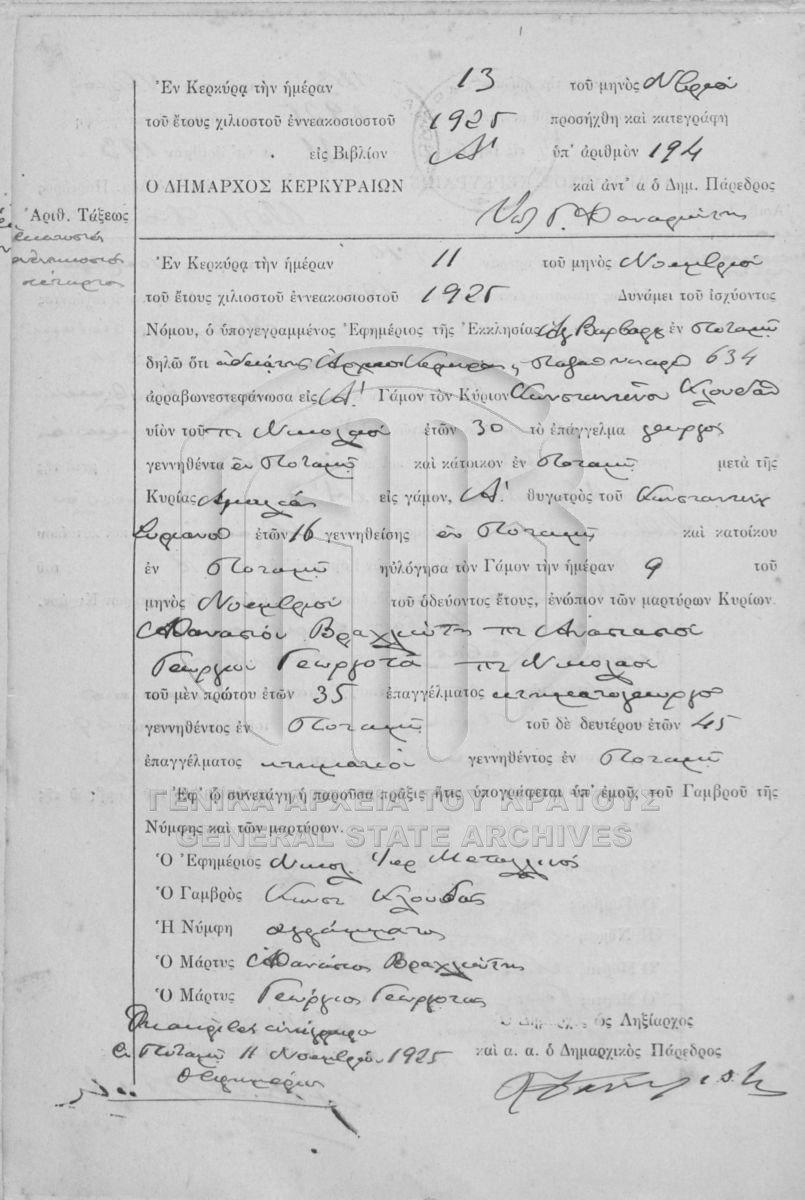 Ἐν Κερκύρᾳ τὴν ἡμέραν 13 τοῦ μηνὸς Νβρίου
τοῦ ἔτους χιλιοστοῦ ἐννεακοσιοστοῦ 1925 προσήχθη καὶ κατεγράφη
εἰς Βιβλίον Α' ὑπ' ἀριθμὸν 194
Ο ΔΗΜΑΡΧΟΣ ΚΕΡΚΥΡΑΙΩΝ καὶ ἀντ' α ὁ Δημ. Πάρεδρος
Ἀριθ. Τάξεως
ἑκατοστὸς
ἐνενηκοστὸς
τέταρτος
Ἐν Κερκύρᾳ τὴν ἡμέραν 11 τοῦ μηνὸς Νοεμβρίου
τοῦ ἔτους χιλιοστοῦ ἐννεακοσιοστοῦ 1925 Δυνάμει τοῦ ἰσχύοντος
Νόμου, ὁ ὑπογεγραμμένος Ἐφημέριος τῆς Ἐκκλησίας Ἁγ Βαρβάρας ἐν Ποταμῷ
δηλῶ ὅτι ἀδείᾳ της 634
ἀρραβωνεστεφάνωσα εἰς Α' Γάμον τὸν Κύριον Κωνσταντῖνον Κλουδᾶ
υἱὸν τοῦ πε Νικολάου ἐτῶν 30 τὸ ἐπάγγελμα γεωργὸς
γεννηθέντα ἐν Ποταμῷ καὶ κάτοικον ἐν Ποταμῷ μετὰ τῆς
Κυρίας Ἀμαλίας εἰς γάμον, Α' θυγατρὸς τοῦ Κωνσταντίνου
Συριανοῦ ἐτῶν 16 γεννηθείσης ἐν Ποταμῷ καὶ κατοίκου
ἐν Ποταμῷ ηὐλόγησα τὸν Γάμον τὴν ἡμέραν 9 τοῦ
μηνὸς Νοεμβρίου τοῦ ὁδεύοντος ἔτους, ἐνώπιον τῶν μαρτύρων Κυρίων
Ἀθανασίου Βραχλιώτη πε Ἀναστασίου
Γεωργίου Γεωργοτᾶ πε Νικολάου
τοῦ μὲν πρώτου ἐτῶν 35 ἐπαγγέλματος κτηματογεωργοῦ
γεννηθέντος ἐν Ποταμῷ τοῦ δὲ δευτέρου ἐτῶν 45
ἐπαγγέλματος κτηματίου γεννηθέντος ἐν Ποταμῷ
Ἐφ' ᾧ συνετάγη ἡ παροῦσα πρᾶξις ἥτις ὑπογράφεται ὑπ' ἐμοῦ, τοῦ Γαμβροῦ τῆς
ΓΕΝΙΚΑ ΑΡΧΕΙΑ ΤΟΥ ΚΡΑΤΟΥΣ
Νύμφης καὶ τῶν μαρτύρων.
GENERAL STATE ARCHIVES
Ὁ Ἐφημέριος Νικόλ. Ἱερ Μεταλληνὸς
Ὁ Γαμβρὸς Κωνστ Κλουδας
Ἡ Νύμφη ἀγράμματος
Ὁ Μάρτυς Ἀθανάσιος Βραχλιώτης
Ὁ Μάρτυς Γεώργιος Γεωργοτας
Ἀκριβὲς ἀντίγραφο
Ὁ Δήμαρχος ὡς Ληξίαρχος
Ἐν Ποταμῷ 11 Νοεμβρίου 1925
καὶ α. α. ὁ Δημαρχικὸς Πάρεδρος
Ὁ Ἐφημέριος